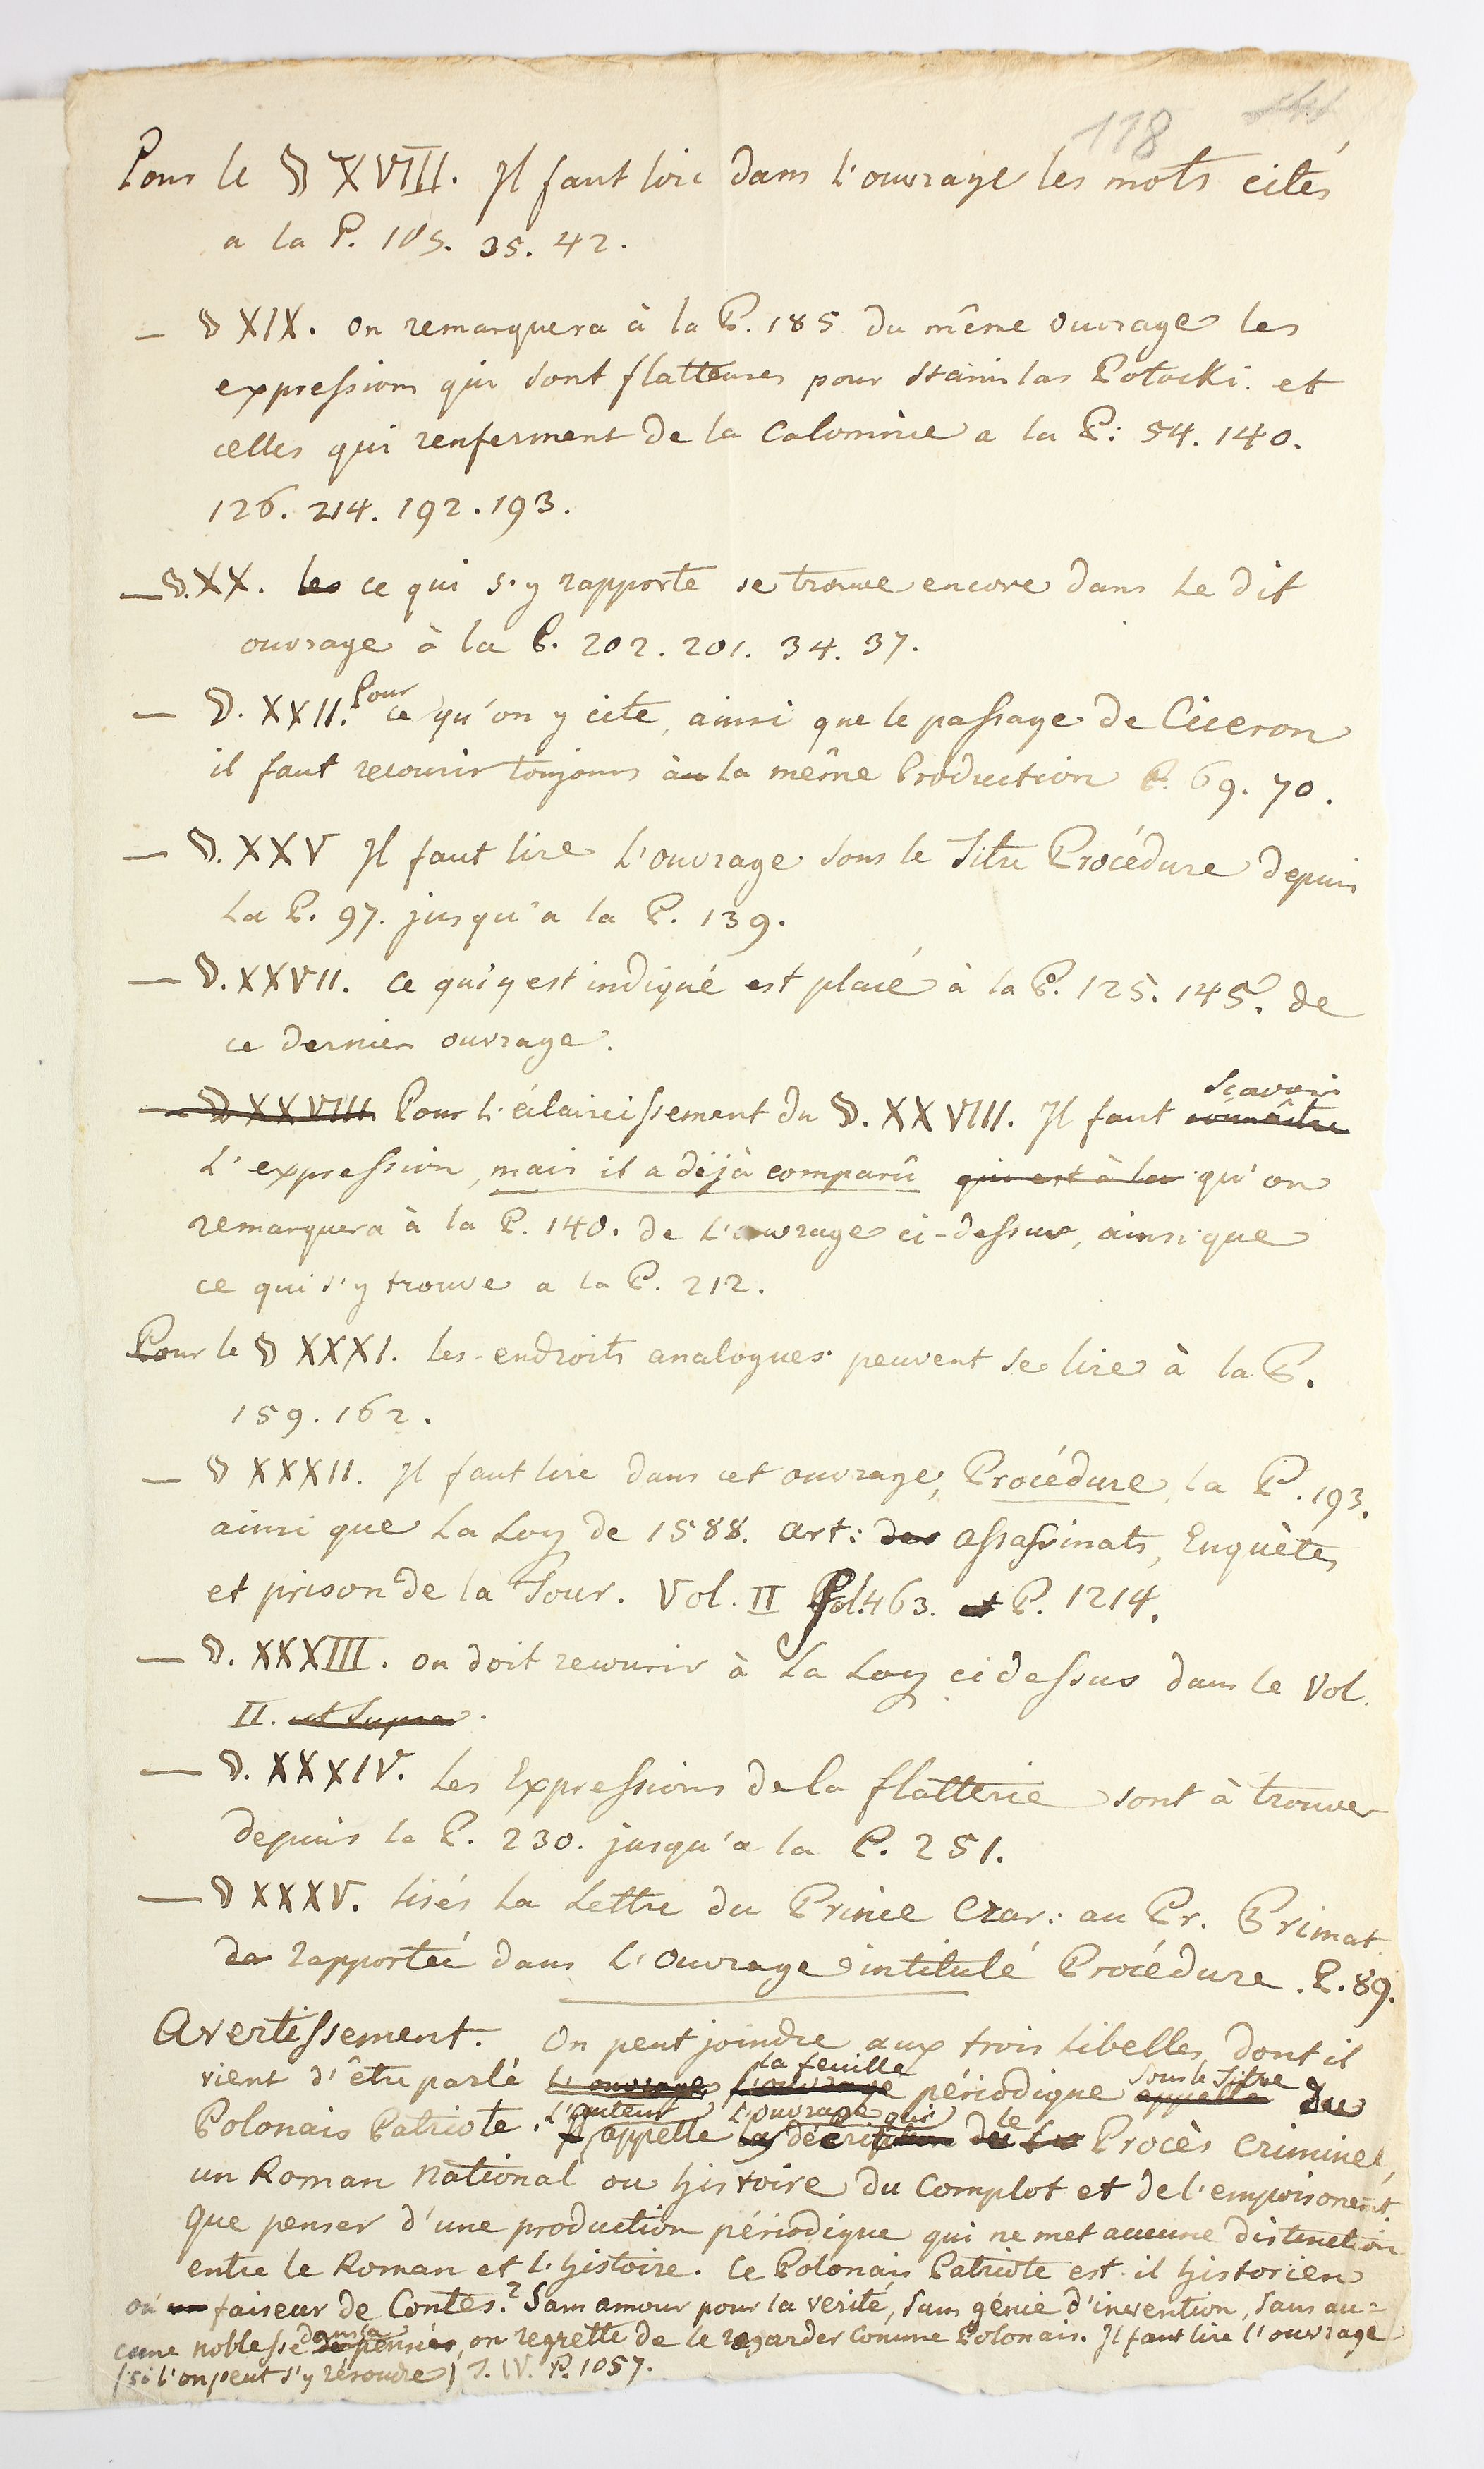 118
Pour le § XVIII. Il faut lire dans l'ouvrage les mots cités
a la P. 105. 35. 42.
— § XIX. on remarquera à la P. 185 du même ouvrage les
expressions qui sont flatteuses pour Stanislas Potocki. et
celles qui renferment de la Calomnie a la P: 54. 140.
126. 214. 192. 193.
— §. XX. les ce qui s'y rapporte se trouve encore dans le dit
ouvrage à la P. 202. 201. 34. 37.
— §. XXII. Pour ce qu'on y cite, ainsi que le passage de Ciceron
il faut recourir toujours au la même Production P. 69. 70.
— §. XXV Il faut lire l'ouvrage sous le Titre Procédure depuis
la P. 97. jusqu'a la P. 139.
— §. XXVII. ce qui y est indiqué est placé à la P. 125. 145. de
ce dernier ouvrage.
— § XXVIII Pour l'éclaircissement du §. XXVIII. Il faut connaître sçavoir
l'expression, mais il a déjà comparû qui est à la qu'on
remarquera à la P. 140. de l'ouvrage ci-dessus, ainsi que
ce qui s'y trouve a la P. 212.
Pour le § XXXI. les endroits analogues peuvent se lire à la P.
159. 162.
— § XXXII. Il faut lire dans cet ouvrage, Procédure, la P. 193.
ainsi que la Loy de 1588. art: des assassinats, Enquètes
et prison de la Tour. Vol. II fol. 463. et P. 1214.
— §. XXXIII. on doit recourir à La Loy ci dessus dans le Vol.
II. ut supra.
— §. XXXIV. les Expressions de la flatterie sont à trouver
depuis la P. 230. jusqu'a la P. 251.
— § XXXV. lisés la Lettre du Prince Czar: au Pr. Primat
da rapporteé dans l'Ouvrage intitulé Procédure. P. 89.
Avertissement. On peut joindre aux trois libelles, dont il
vient d'être parlé l'ouvrage l'ouvrage la feuille périodique appellé sous le Titre du
Polonais Patriote. Il l'auteur appelle la l'ouvrage qui décrit de la le Procès criminel,
un Roman National ou histoire du Complot et de l'empoisonemt.
Que penser d'une production périodique qui ne met aucune distinction
entre le Roman et l'histoire. Ce Polonais Patriote est-il historien
ou un faiseur de Contes.? Sans amour pour la verité, sans génie d'invention, sans au=
cune noblesse de dans sa pensée, on regrette de le regarder comme Polonais. Il faut lire l'ouvrage
(si l'on peut s'y résoudre) T. IV. P. 1057.